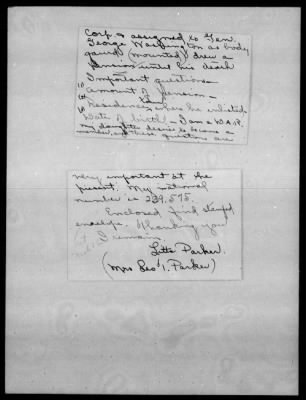 Corp. & assigned to Gen.
George Washington as body
guard (mounted) drew a
pension until his death
Important questions—
(1) amount of pension—
(2) Residence, when he enlisted
(3) Date of birth — I am a D.A.R.
my daughter desires to become a
member, and these questions are
very important at the
present. My national
number is 239,575.
Enclosed find stamped
envelope. Thanking you
I remain
Parker.
(Mrs Geo. I. Parker)